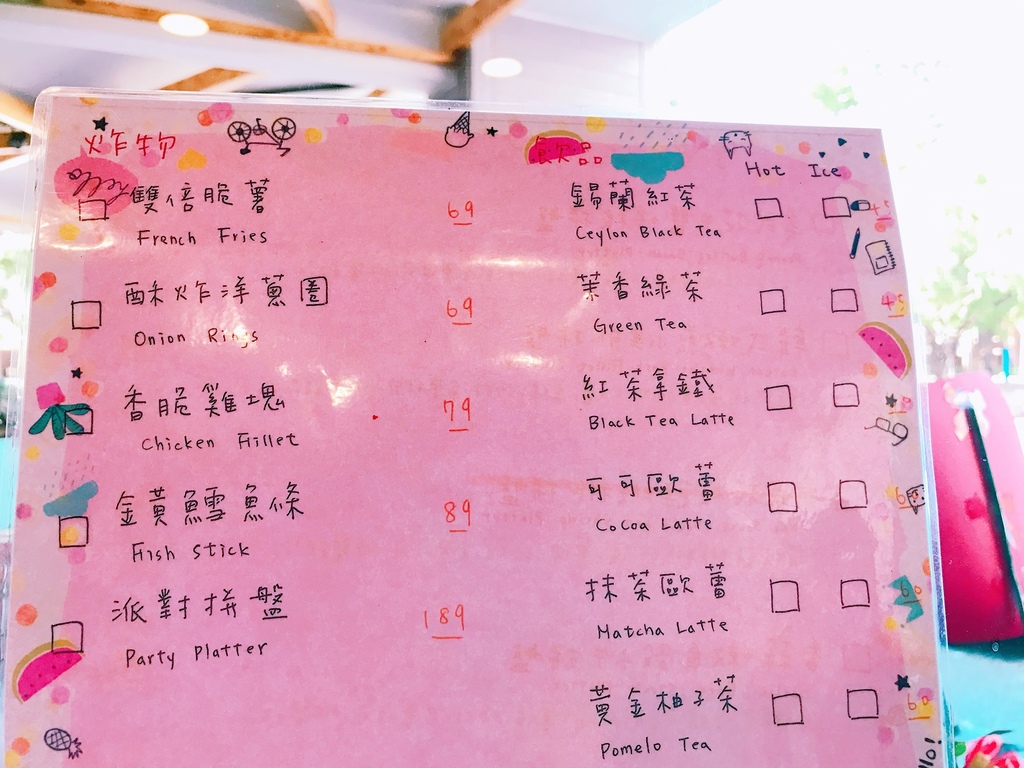 炸物
hello
雙倍脆薯 69
French Fries
酥炸洋蔥圈 69
Onion Rings
香脆雞塊 79
Chicken Fillet
金黃鱈魚條 89
Fish Stick
派對拼盤 189
Party Platter
飲品
Hot Ice
錫蘭紅茶 45
Ceylon Black Tea
茉香綠茶 45
Green Tea
紅茶拿鐵
Black Tea Latte
可可歐蕾
Cocoa Latte
抹茶歐蕾 60
Matcha Latte
黃金柚子茶 60
Pomelo Tea